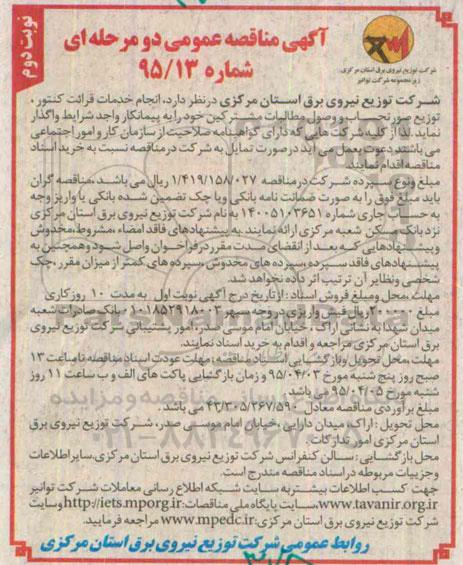 نوبت دوم
آگهی مناقصه عمومی دو مرحله ای
شماره ۹۵/۱۳
شرکت توزیع نیروی برق استان مرکزی
زیر مجموعه شرکت توانیر
شرکت توزیع نیروی برق استان مرکزی در نظر دارد، انجام خدمات قرائت کنتور ،
توزیع صورتحساب و وصول مطالبات مشترکین خود را به پیمانکار واجد شرایط واگذار
نماید .لذا از کلیه شرکت هایی که دارای گواهینامه صلاحیت از سازمان کار و امور اجتماعی
می باشند دعوت بعمل می آید در صورت تمایل به شرکت در مناقصه نسبت به خرید اسناد
مناقصه اقدام نمایند.
مبلغ ونوع سپرده شرکت در مناقصه ۱/۴۱۹/۱۵۸/۰۲۷ ریال می باشد ،مناقصه گران
باید مبلغ فوق را به صورت ضمانت نامه بانکی ویا چک تضمین شده بانکی یا واریز وجه
به حساب جاری شماره ۱۴۰۰۵۱۰۳۶۵۱ به نام شرکت توزیع نیروی برق استان مرکزی
نزد بانک مسکن شعبه مرکزی ارائه نمایند.به پیشنهادهای فاقد امضاء ،مشروط،مخدوش
و پیشنهادهایی که بعد از انقضای مدت مقرر در فراخوان واصل شود و همچنین به
پیشنهادهای فاقد سپرده ،سپرده های مخدوش ،سپرده های کمتر از میزان مقرر ،چک
شخصی ونظایر آن ترتیب اثر داده نخواهد شد.
مهلت ،محل ومبلغ فروش اسناد : از تاریخ درج آگهی نوبت اول به مدت ۱۰ روز کاری
مبلغ ۲۰۰۰۰۰ ریال فیش واریزی در وجه سپهر ۰۱۰۱۸۵۲۹۱۸۰۰۳ بانک صادرات شعبه
میدان شهدا به نشانی اراک ، خیابان امام موسی صدر، امور پشتیبانی شرکت توزیع نیروی
برق استان مرکزی مراجعه و اقدام به خرید اسناد نمایند.
مهلت ،محل تحویل وبازگشایی اسناد مناقصه : مهلت عودت اسناد مناقصه تا ساعت ۱۳
صبح روز پنج شنبه مورخ ۹۵/۰۴/۰۳ و زمان بازگشایی پاکت های الف و ب ساعت ۱۱ روز
شنبه مورخ ۹۵/۰۴/۰۵ می باشد.
مبلغ برآوردی مناقصه معادل ۴۳/۳۰۵/۲۶۷/۵۹۰ می باشد .
محل تحویل : اراک، میدان دارایی ،خیابان امام موسی صدر، شرکت توزیع نیروی برق
استان مرکزی امور تدارکات .
محل بازگشایی : سالن کنفرانس شرکت توزیع نیروی برق استان مرکزی.سایر اطلاعات
وجزییات مربوطه در اسناد مناقصه مندرج است.
جهت کسب اطلاعات بیشتر به سایت شبکه اطلاع رسانی معاملات شرکت توانیر
www.tavanir.org.ir،سایت پایگاه ملی مناقصات:http://iets.mporg.ir وسایت
شرکت توزیع نیروی برق استان مرکزی:www.mpedc.ir مراجعه فرمایید.
روابط عمومی شرکت توزیع نیروی برق استان مرکزی